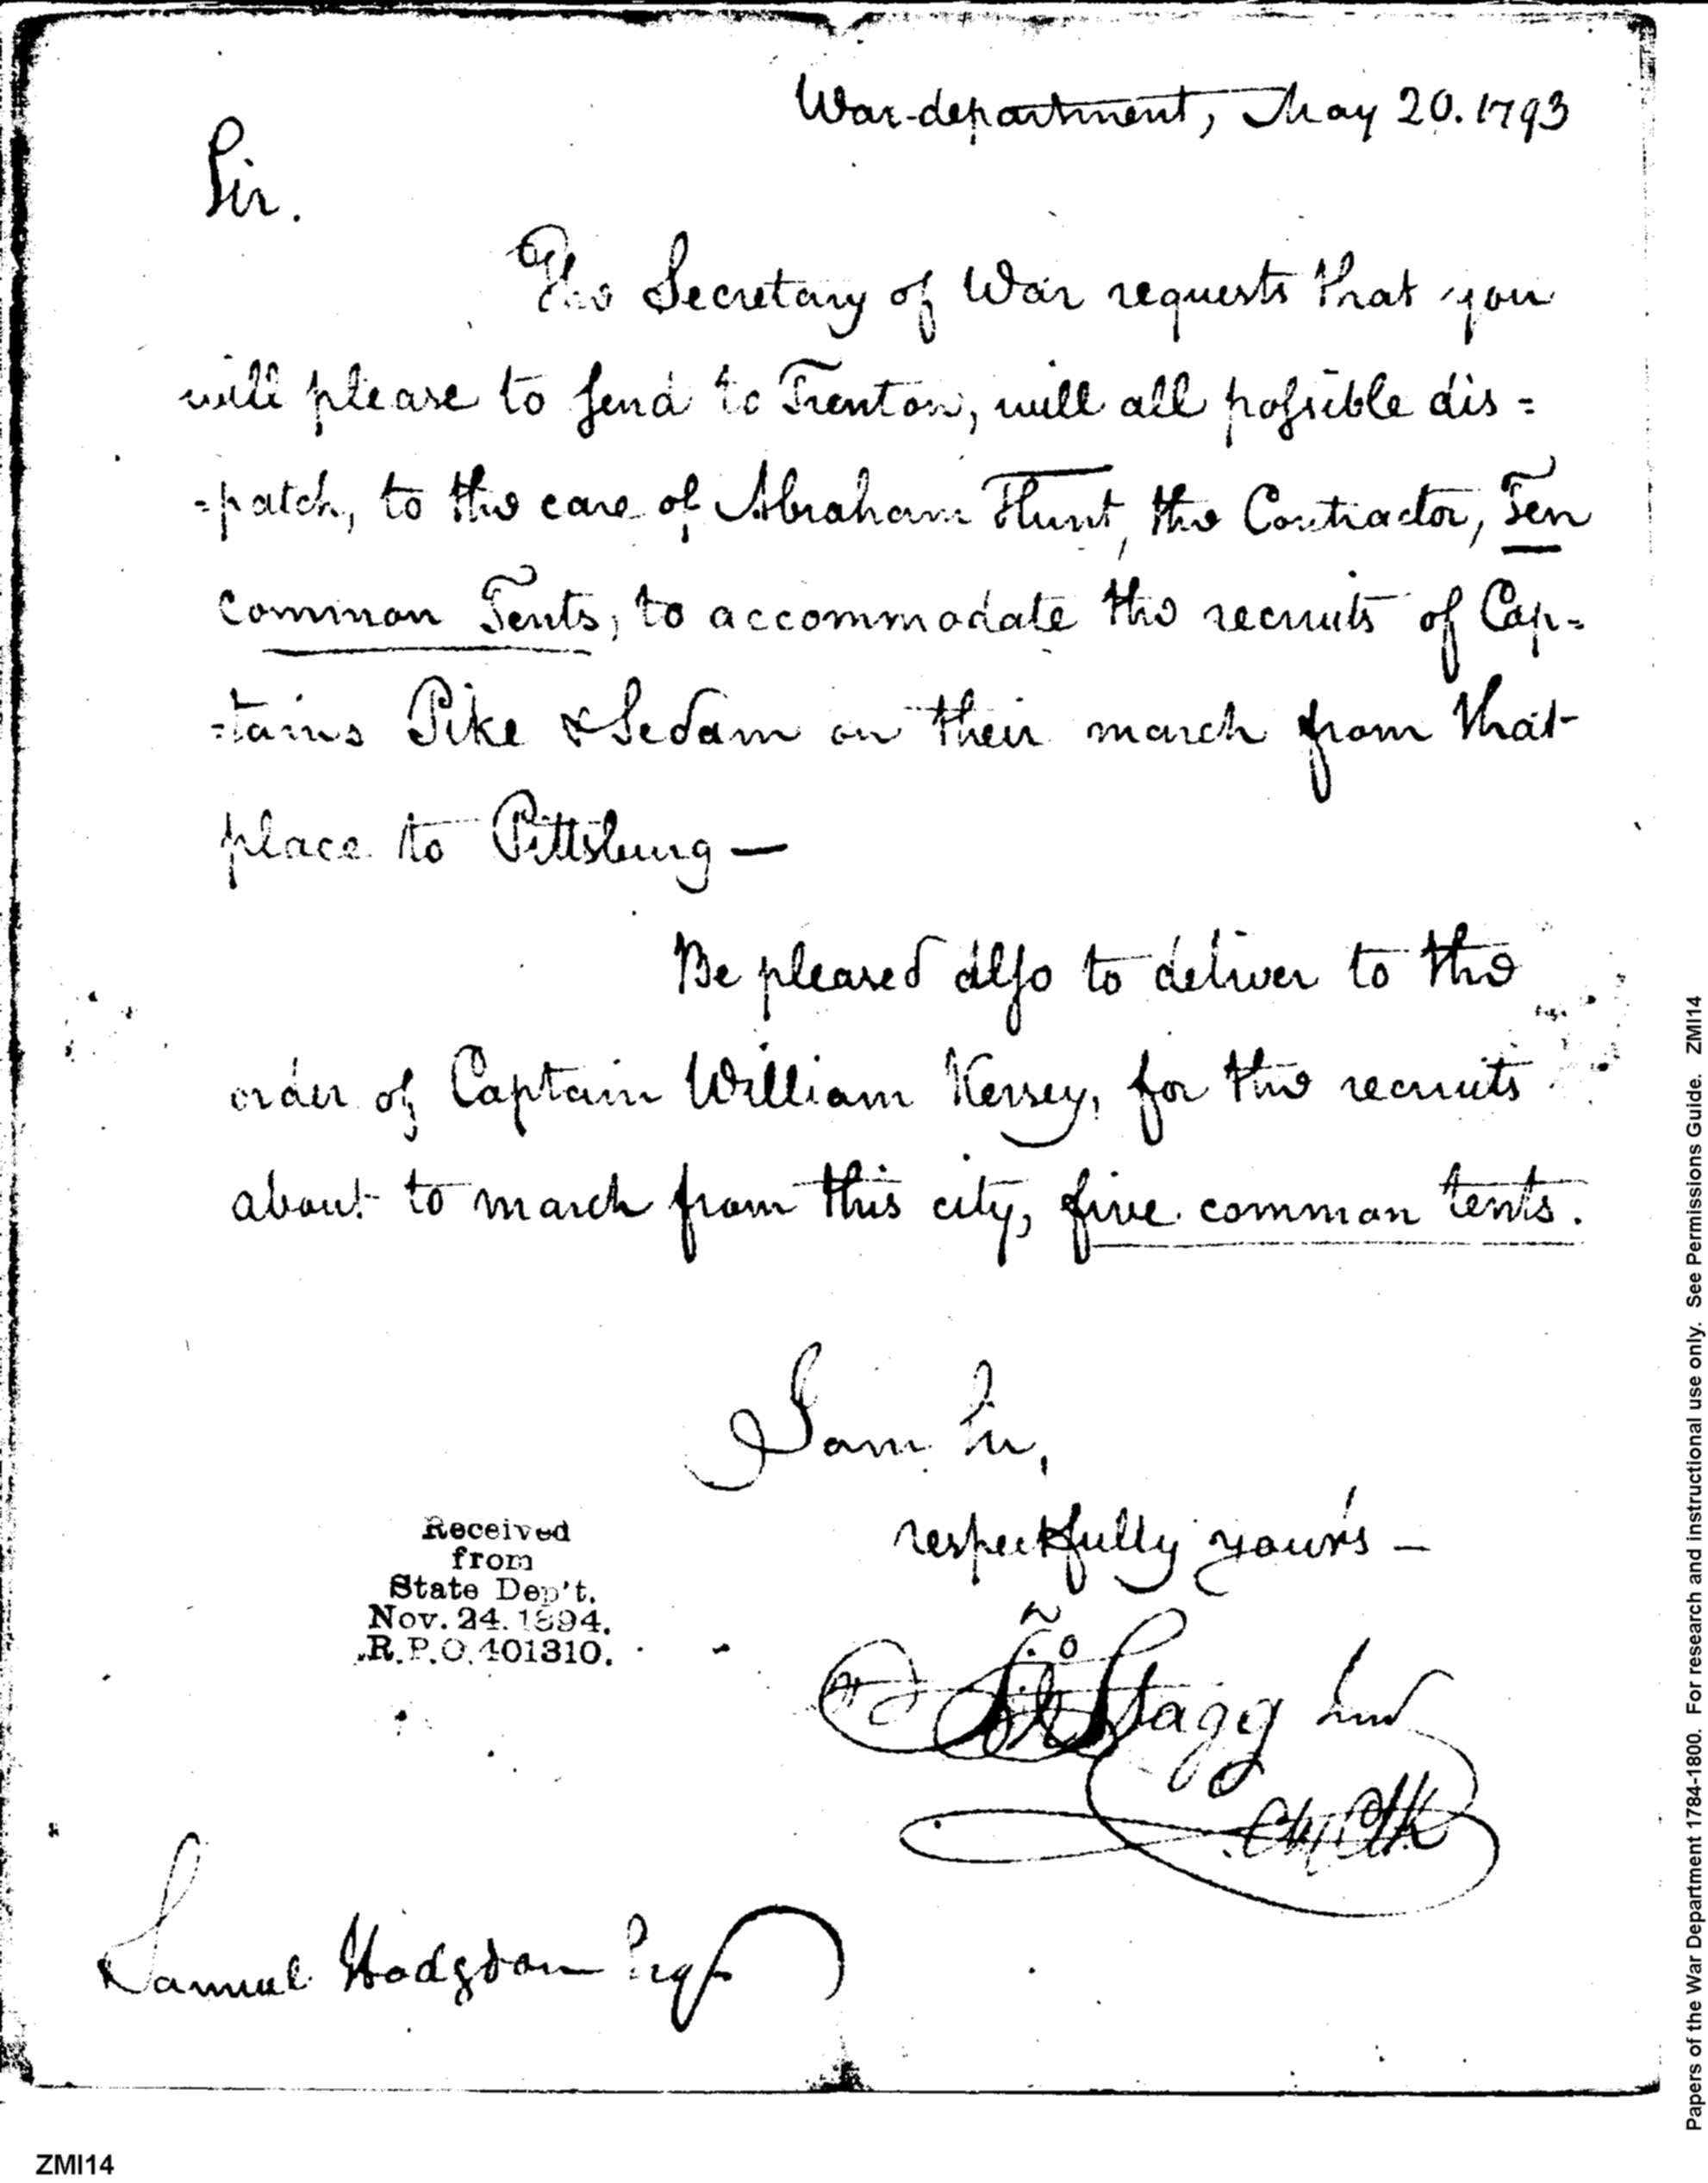 War-department, May 20. 1793
Sir.
The Secretary of War requests that you
will please to send to Trenton, will all possible dis=
=patch, to the care of Abraham Hunt, the Contractor, Ten
common Tents, to accommodate the recruits of Cap=
=tains Pike & Sedam on their march from that
place to Pittsburg—
Be pleased also to deliver to the
order of Captain William Kersey, for the recruits
about to march from this city, five common tents.
I am Sir,
respectfully yours—
Received
from
State Dep't.
Nov. 24. 1894.
R.P.O. 401310.
Jno Stagg Junr
Ch Clk
Samuel Hodgdon Esqr
Papers of the War Department 1784-1800. For research and Instructional use only. See Permissions Guide. ZMI14
ZMI14